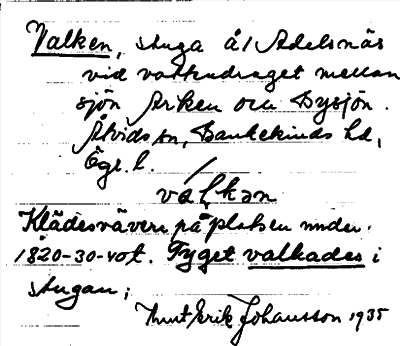 Valken, stuga å/ Adelsnäs
vid vattendraget mellan
sjön Ärken och Bysjön.
Åtvids sn, Bankekinds hd,
Ögr. l.
valkan
Klädesvävere på platsen under
1820-30-40t. Tyget valkades i
stugan;
Knut Erik Johansson 1935